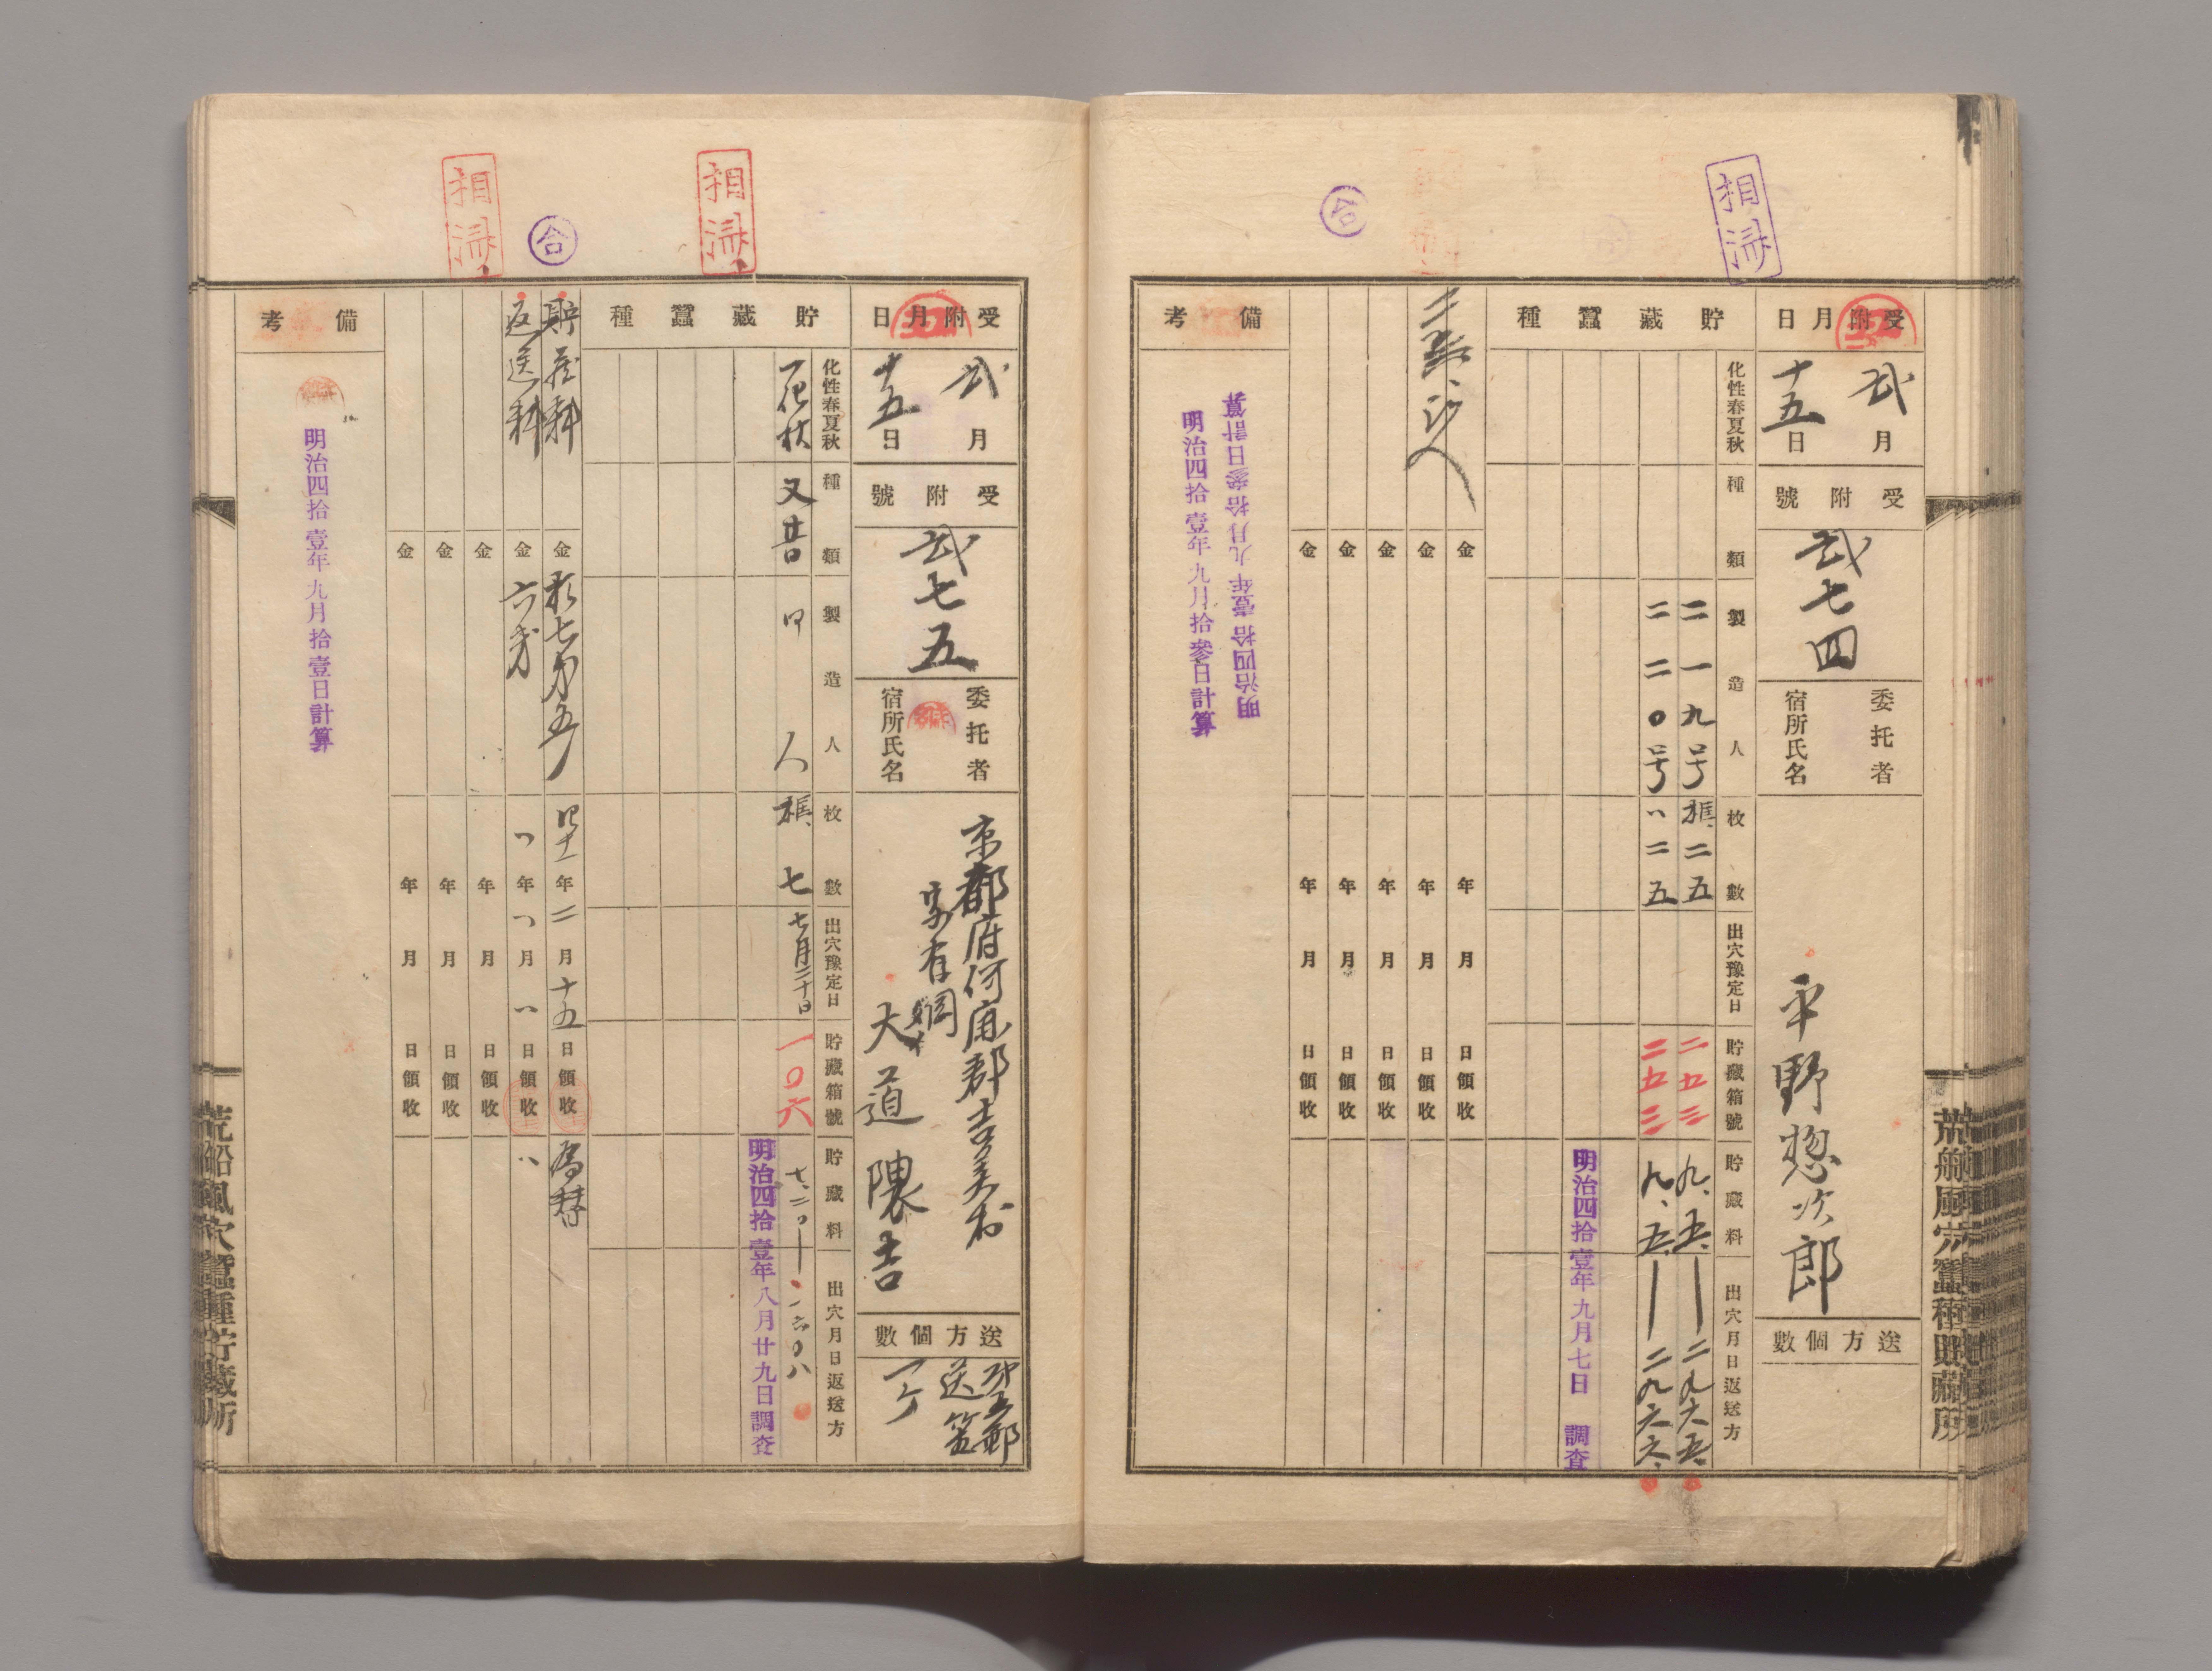 相済
合
受附月日
弐月
十五日
受附號
弐七四
委托者
宿所氏名
平野惣次郎
送方個數
貯藏蠶種
化性春夏秋
種類
製造人
枚數
出穴豫定日
貯藏箱號
貯藏料
出穴月日返送方
二一九号
框二五
二五三
九、五、
二九六五
二二〇号
〃二五
二五三
九、五、
二九六六
明治四拾壹年九月七日 調査
金 年 月 日領收
金 年 月 日領收
金 年 月 日領收
金 年 月 日領收
金 年 月 日領收
備考
明治四拾壹年九月拾參日計算
明治四拾壹年九月拾參日計算
荒船風穴蠶種貯藏所
相済
合
相済
受附月日
弐月
十五日
受附號
弐七五
委托者
宿所氏名
京都府何鹿郡吉美村
字有岡
大道隈吉
送方個數
一ケ
貯藏蠶種
化性春夏秋
種類
製造人
枚數
出穴豫定日
貯藏箱號
貯藏料
出穴月日返送方
一化秋
又昔
人
框、七
七月二十日
一〇六
明治四拾壹年八月廿九日調査
貯藏料
金 年二月十五日領收
為替
返送料
金 〃年〃月〃日領收
〃
金 年 月 日領收
金 年 月 日領收
金 年 月 日領收
備考
明治四拾壹年九月拾壹日計算
荒船風穴蠶種貯藏所